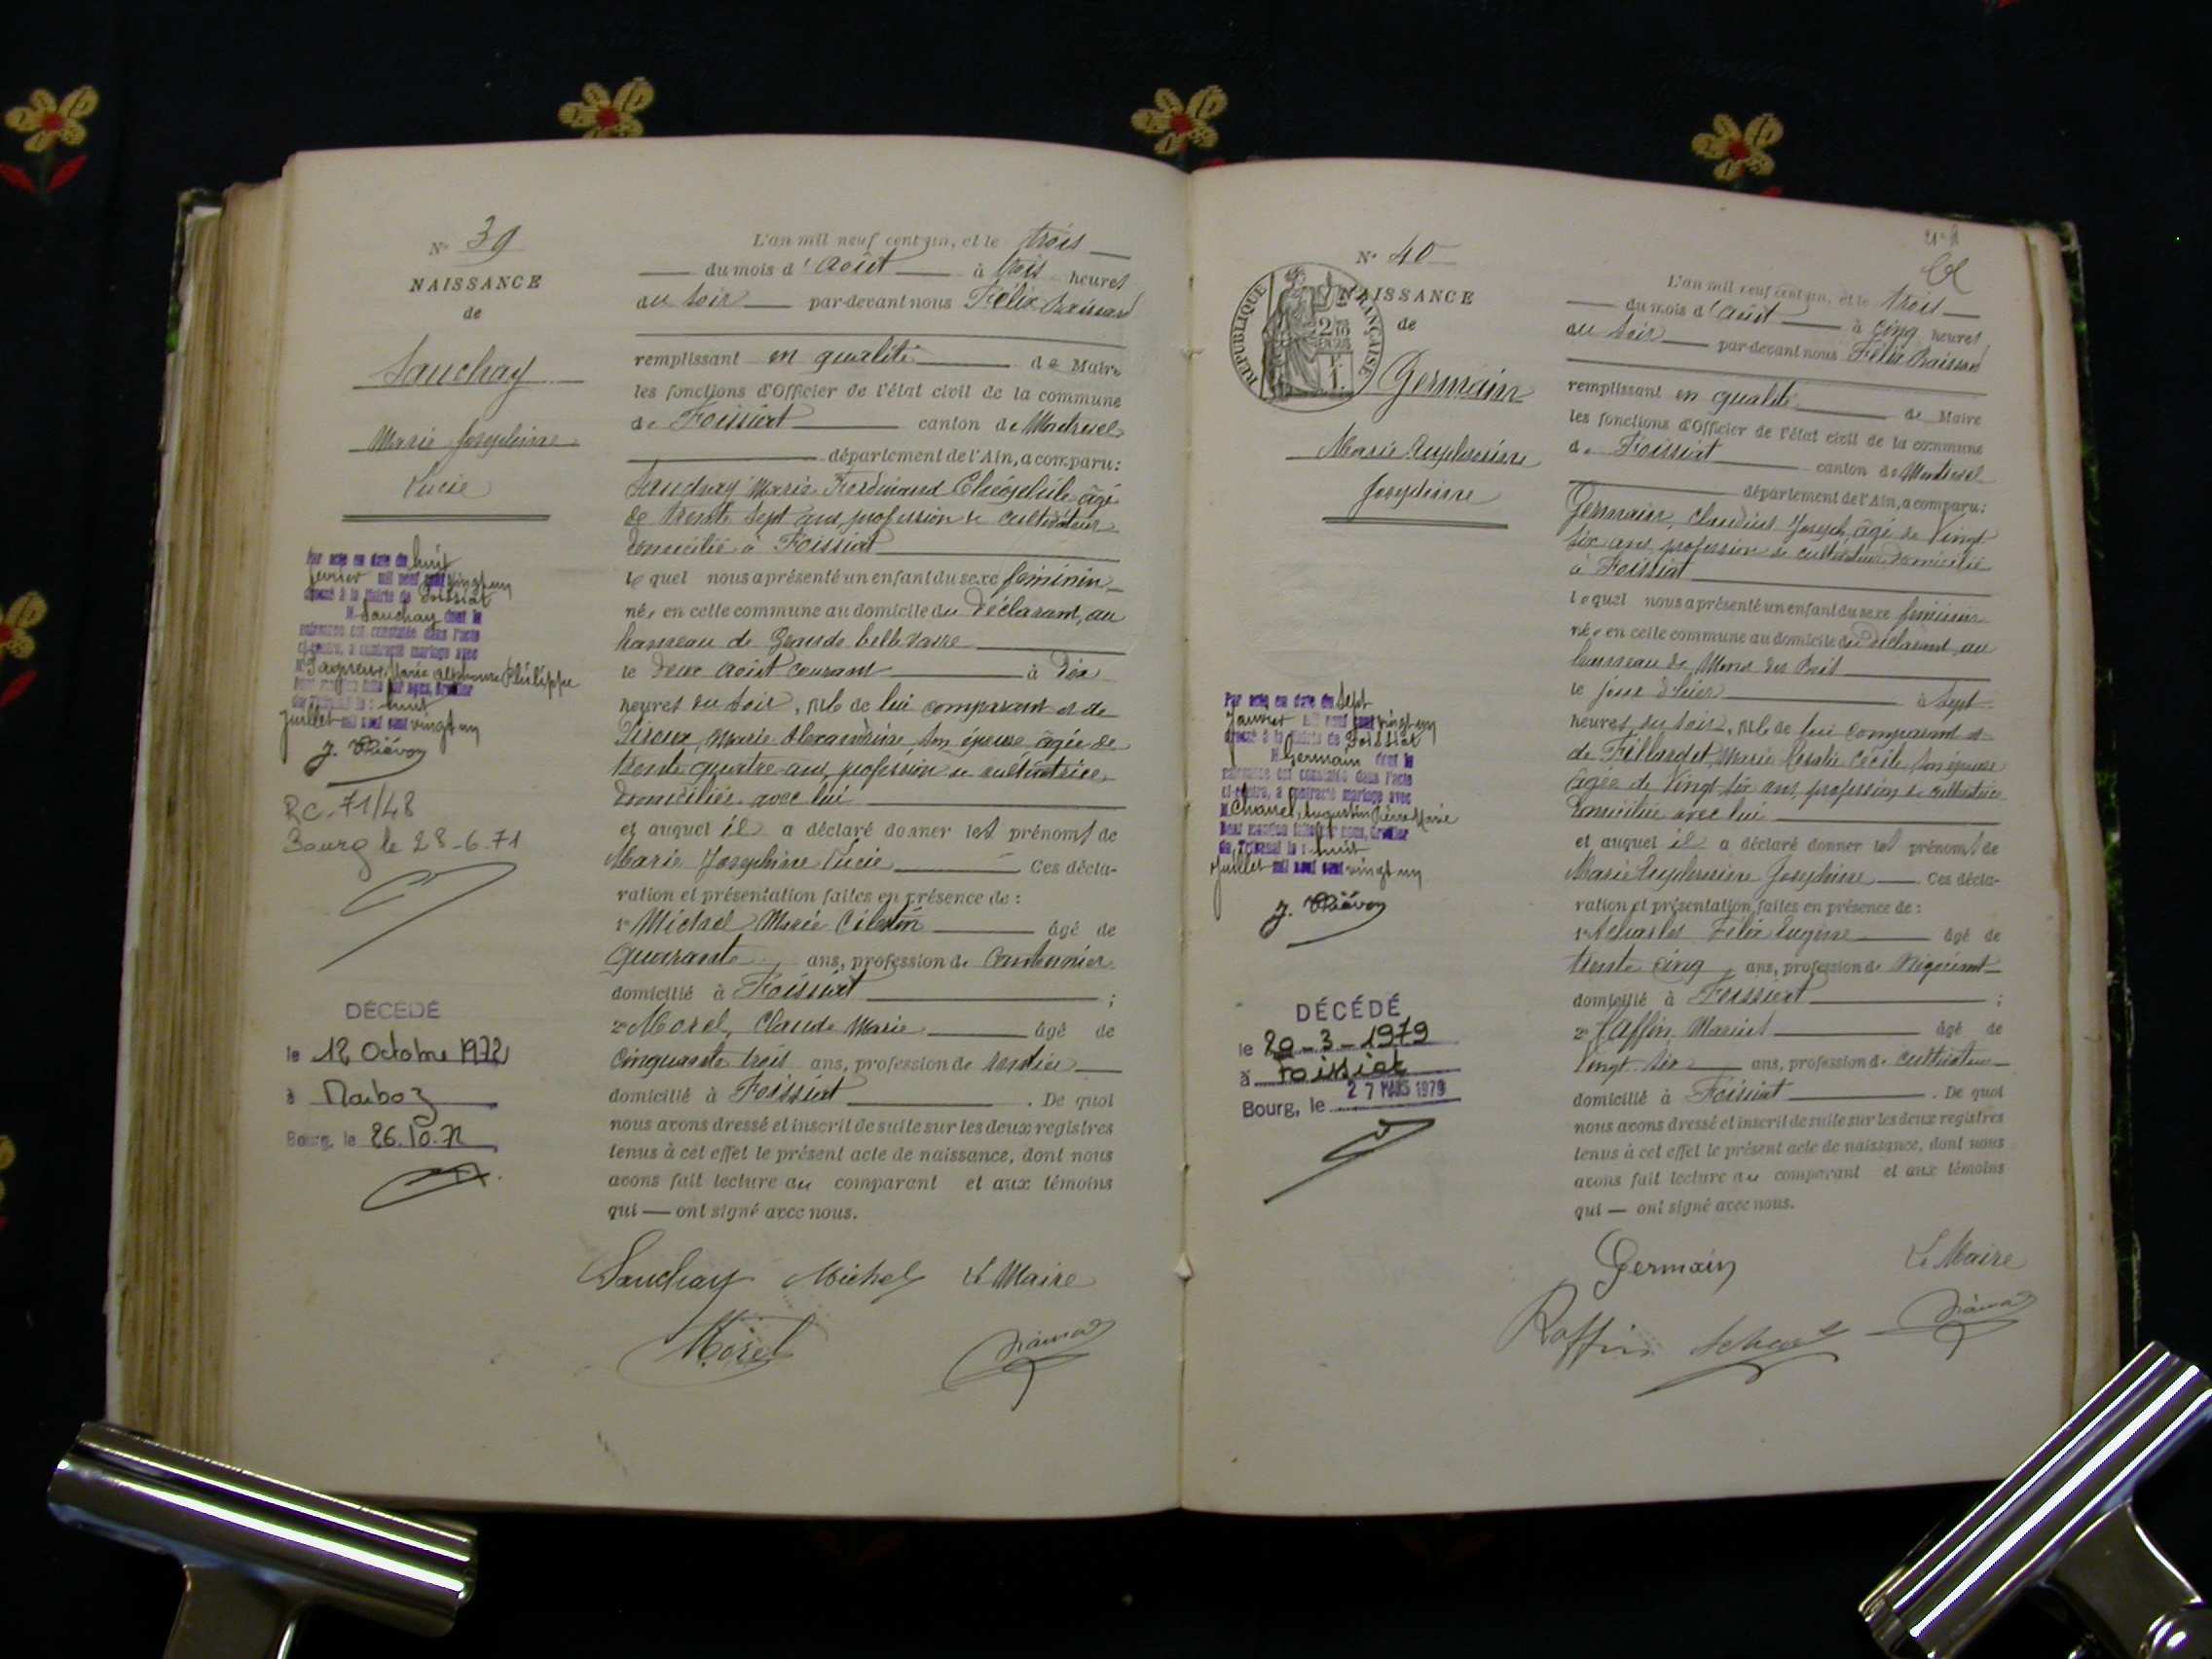 N° 39
NAISSANCE
de
Sauchay
Marie Josephine
Lucie
Par acte en date du huit
février mil neuf cent vingt un
dressé à la Mairie de Foissiat
M. Sauchay dont la
naissance est constatée dans l'acte
ci-contre, a contracté mariage avec
Marie Alphonse Philippe
du Tribunal le : huit
Juillet mil neuf cent vingt un
RC. 71/48
Bourg le 28-6.71
DÉCÉDÉ
le 12 Octobre 1972
à Marboz
Bourg, le 26.10.72
L'an mil neuf cent un, et le trois
du mois d'Août à trois heures
du soir par-devant nous Félix
remplissant en qualité de Maire
les fonctions d'Officier de l'état civil de la commune
de Foissiat canton de Montrevel
département de l'Ain, a comparu :
Sauchay Marie Ferdinand Théophile âgé
de trente sept ans, profession de cultivateur
domicilié à Foissiat
lequel nous a présenté un enfant du sexe féminin
née en cette commune au domicile du déclarant, au
hameau de Grande
le deux Août courant à dix
heures du soir, née de lui comparant et de
Marie Alexandrine son épouse âgée de
trente quatre ans, profession de cultivatrice
domiciliée avec lui
et auquel il a déclaré donner les prénoms de
Marie Josephine Lucie Ces décla-
ration et présentation faites en présence de :
1° Michel Marie Célestin âgé de
quarante ans, profession de cantonnier
domicilié à Foissiat ;
2° Morel, Claude Marie âgé de
cinquante trois ans, profession de rentier
domicilié à Foissiat . De quoi
nous avons dressé et inscrit de suite sur les deux registres
tenus à cet effet le présent acte de naissance, dont nous
avons fait lecture au comparant et aux témoins
qui — ont signé avec nous.
Sauchay Michel Le Maire
Morel
N° 40
NAISSANCE
de
REPUBLIQUE FRANÇAISE
Germain
Marie Euphrosine
Josephine
Par acte en date du sept
Janvier mil neuf cent vingt un
dressé à la Mairie de Foissiat
M. Germain dont la
naissance est constatée dans l'acte
ci-contre, a contracté mariage avec
M. Chanel, Augustin Pierre Marie
Dont mention faite par nous, Greffier
du Tribunal le : huit
Juillet mil neuf cent vingt un
DÉCÉDÉ
le 20-3-1979
à Foissiat
Bourg, le 27 MARS 1979
L'an mil neuf cent un, et le trois
du mois d'Août à cinq heures
du soir par-devant nous Félix
remplissant en qualité de Maire
les fonctions d'Officier de l'état civil de la commune
de Foissiat canton de Montrevel
département de l'Ain, a comparu :
Germain, Claudius Joseph, âgé de vingt
six ans, profession de cultivateur domicilié
à Foissiat
lequel nous a présenté un enfant du sexe féminin
née en cette commune au domicile du déclarant, au
hameau de
le jour d'hier à sept
heures du soir, née de lui comparant et
de Fillardet, Marie Rosalie Cécile son épouse
âgée de vingt six ans, profession de cultivatrice
domiciliée avec lui
et auquel il a déclaré donner les prénoms de
Marie Euphrosine Josephine Ces décla-
ration et présentation faites en présence de :
1° Félix Eugène âgé de
trente cinq ans, profession de Négociant
domicilié à Foissiat ;
2° Raffin, Marius âgé de
vingt six ans, profession de cultivateur
domicilié à Foissiat . De quoi
nous avons dressé et inscrit de suite sur les deux registres
tenus à cet effet le présent acte de naissance, dont nous
avons fait lecture au comparant et aux témoins
qui — ont signé avec nous.
Germain Le Maire
Raffin